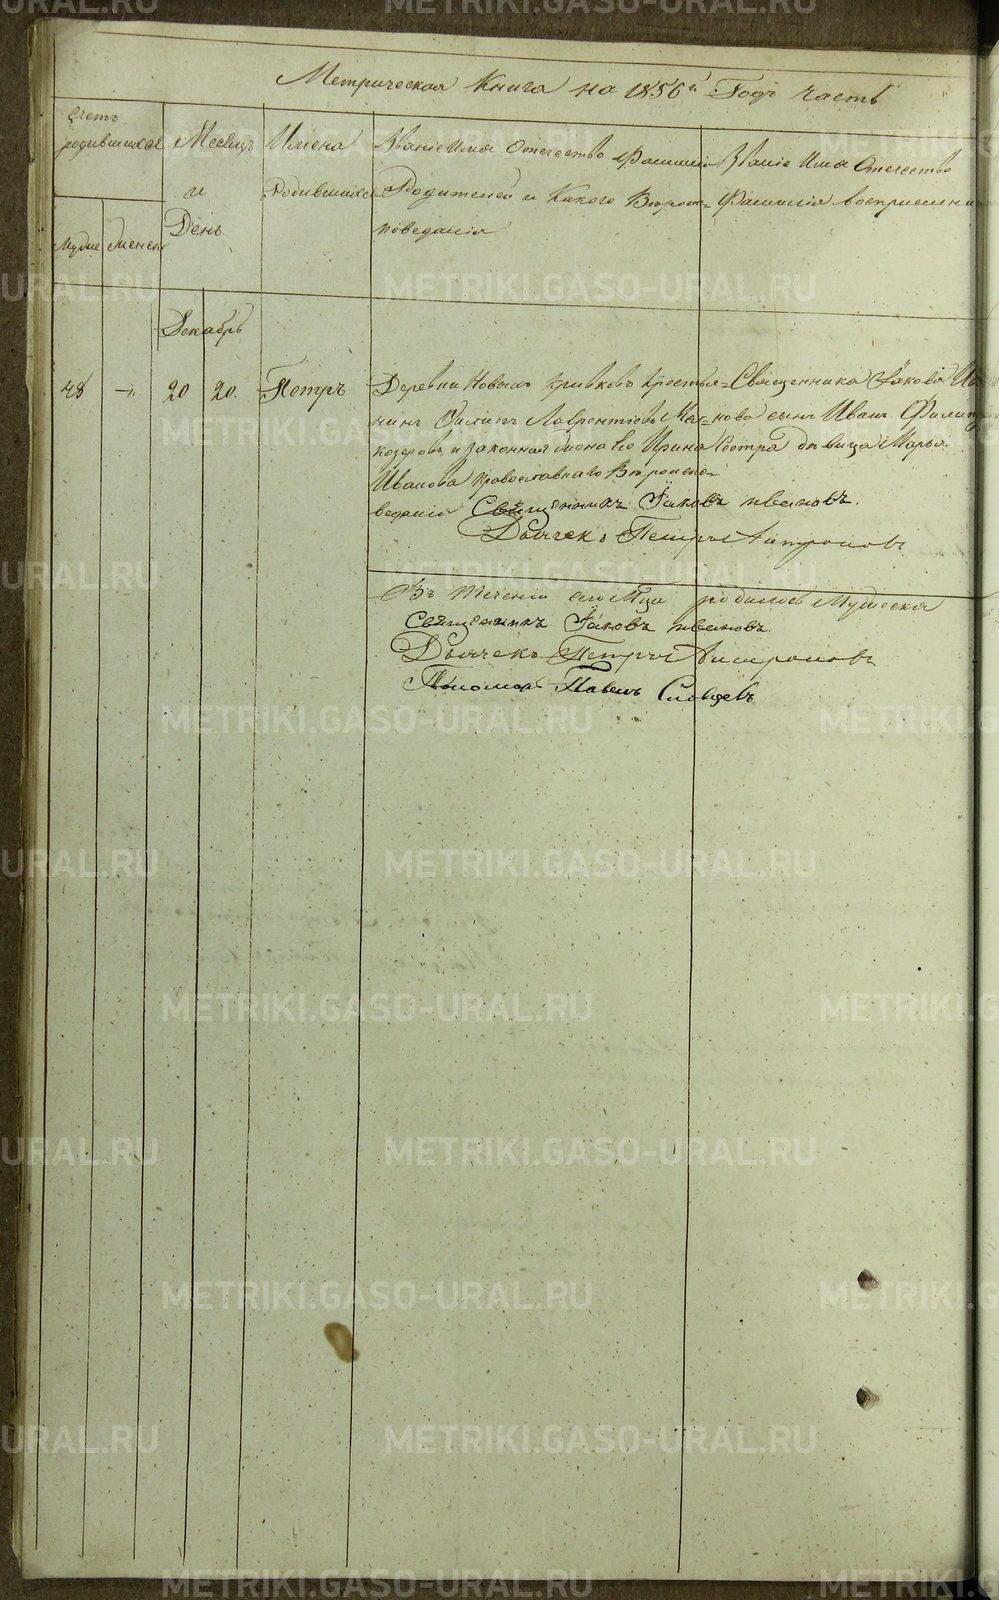 Метрическая Книга на 1856й Годъ часть
Счетъ родившихся
Мужие
женск
Месяцъ и День
Имена Родившихся
Званіе имя Отечество и фамилія
Родителей и Какого Вероис=
поведанія
Званіе Имя Отечество
Фамилія восприемни
Декабрь
48 — 20 20. Петръ
Деревни Новыхъ Кривковъ крестья=
нинъ Филипъ Лаврентьевъ
и законная жена его Ирина
Иванова православнаго Вероиспо=
веданія
Священника Іакова Ива
нова сынъ Иванъ. Филип
Сестра девица Марья.
Священникъ Іаковъ Ивановъ.
Дьячекъ Петръ Антроповъ
Въ течении сего Мца родилось Мужеска
Священникъ Іаковъ Ивановъ.
Дьячекъ Петръ Антроповъ
Пономарь Павелъ Словцевъ
METRIKI.GASO-URAL.RU